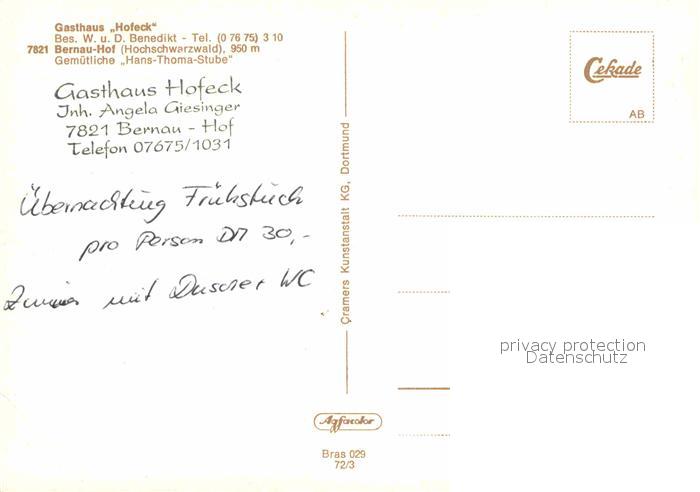 Gasthaus „Hofeck“
Bes. W. u. D. Benedikt - Tel. (0 76 75) 3 10
7821 Bernau-Hof (Hochschwarzwald), 950 m
Gemütliche „Hans-Thoma-Stube“
Gasthaus Hofeck
Inh. Angela Giesinger
7821 Bernau - Hof
Telefon 07675/1031
Übernachtung Frühstück
pro Person DM 30,-
Zimmer mit Dusche + WC
Cramers Kunstanstalt KG, Dortmund
Cekade
AB
privacy protection
Datenschutz
Agfacolor
Bras 029
72/3